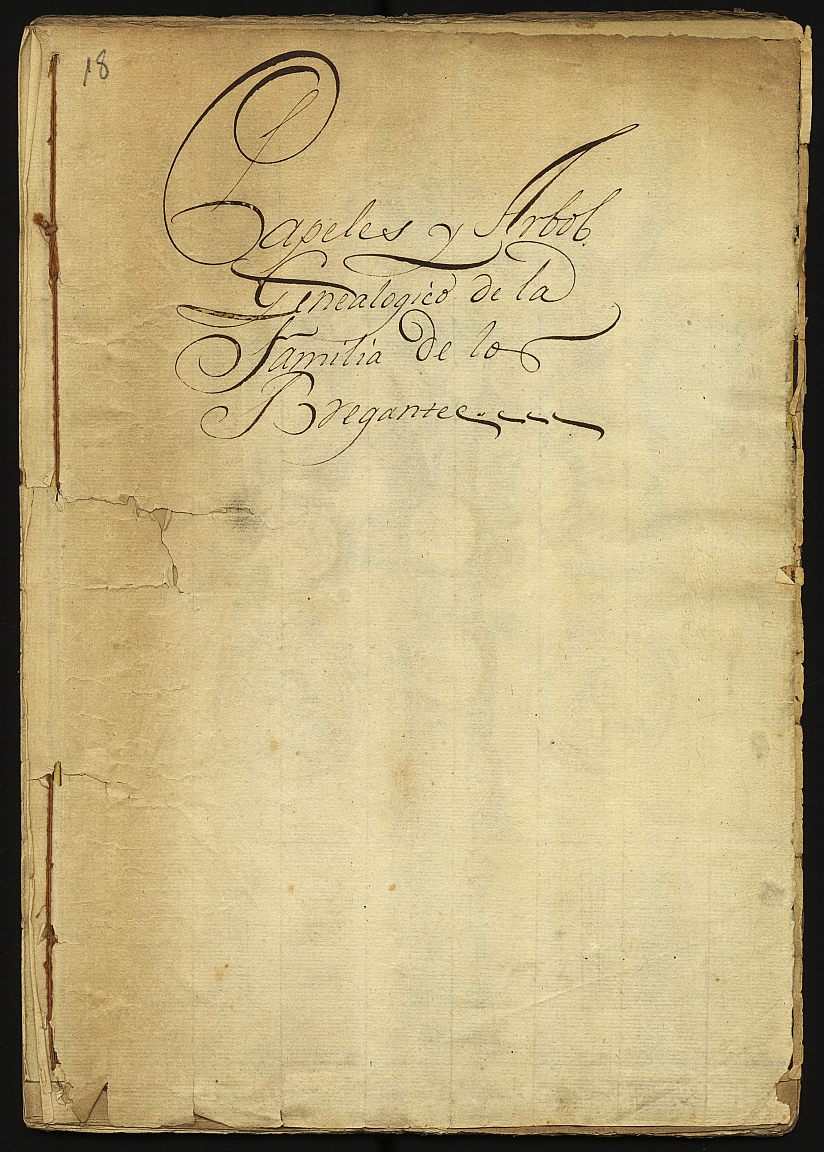 18
Papeles y Arbol.
Genealogico de la
Familia de los
Bregante